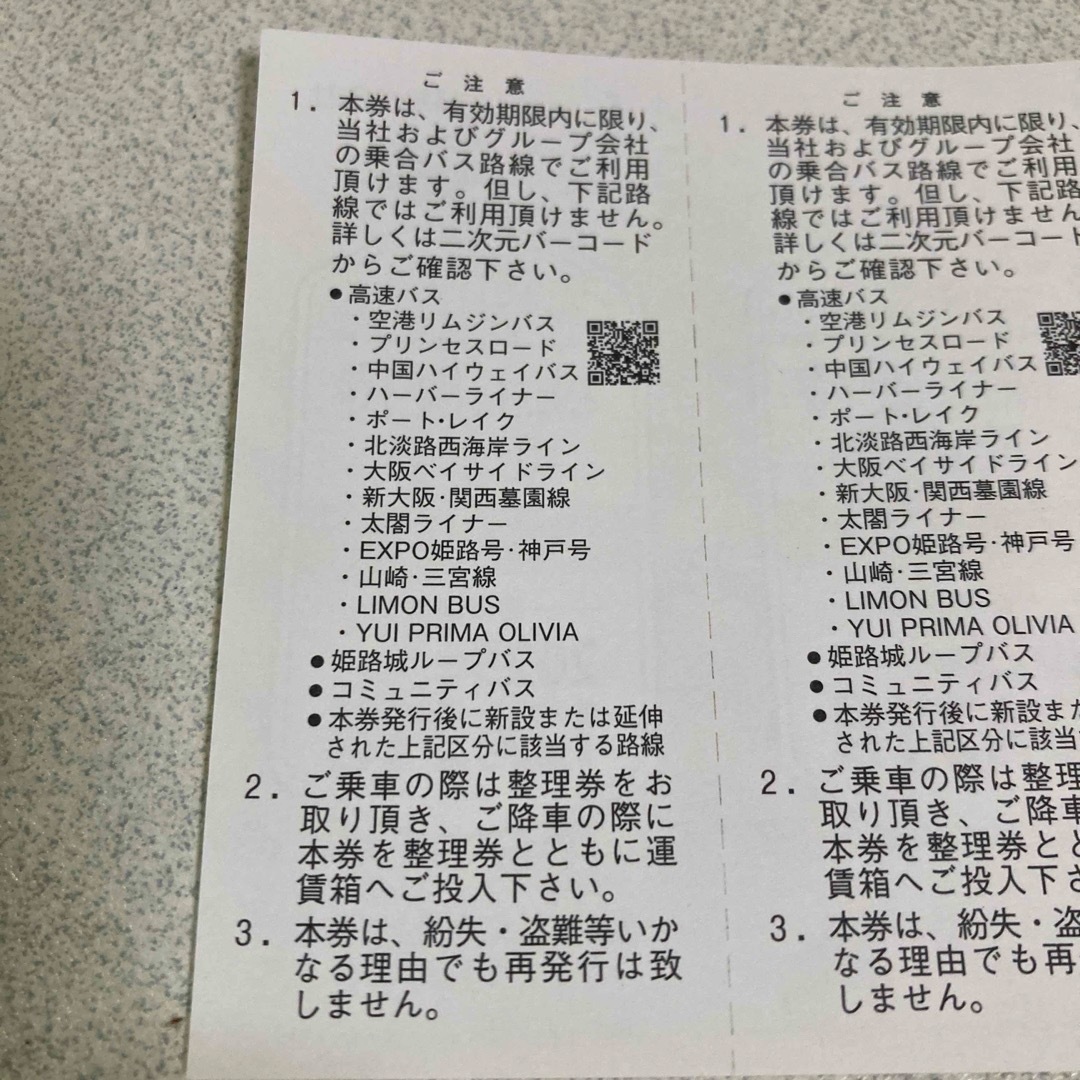 ご注意
1．本券は、有効期限内に限り、
当社およびグループ会社
の乗合バス路線でご利用
頂けます。但し、下記路
線ではご利用頂けません。
詳しくは二次元バーコード
からご確認下さい。
●高速バス
・空港リムジンバス
・プリンセスロード
・中国ハイウェイバス
・ハーバーライナー
・ポート・レイク
・北淡路西海岸ライン
・大阪ベイサイドライン
・新大阪・関西墓園線
・太閤ライナー
・EXPO姫路号・神戸号
・山崎・三宮線
・LIMON BUS
・YUI PRIMA OLIVIA
●姫路城ループバス
●コミュニティバス
●本券発行後に新設または延伸
された上記区分に該当する路線
2．ご乗車の際は整理券をお
取り頂き、ご降車の際に
本券を整理券とともに運
賃箱へご投入下さい。
3．本券は、紛失・盗難等いか
なる理由でも再発行は致
しません。
ご注意
1．本券は、有効期限内に限り、
当社およびグループ会社
の乗合バス路線でご利用
頂けます。但し、下記路
線ではご利用頂けません
詳しくは二次元バーコー
からご確認下さい。
●高速バス
・空港リムジンバス
・プリンセスロード
・中国ハイウェイバス
・ハーバーライナー
・ポート・レイク
・北淡路西海岸ライン
・大阪ベイサイドライン
・新大阪・関西墓園線
・太閤ライナー
・EXPO姫路号・神戸号
・山崎・三宮線
・LIMON BUS
・YUI PRIMA OLIVIA
●姫路城ループバス
●コミュニティバス
●本券発行後に新設また
された上記区分に該当
2．ご乗車の際は整理
取り頂き、ご降車
本券を整理券とと
賃箱へご投入下さ
3．本券は、紛失・盗
なる理由でも再
しません。